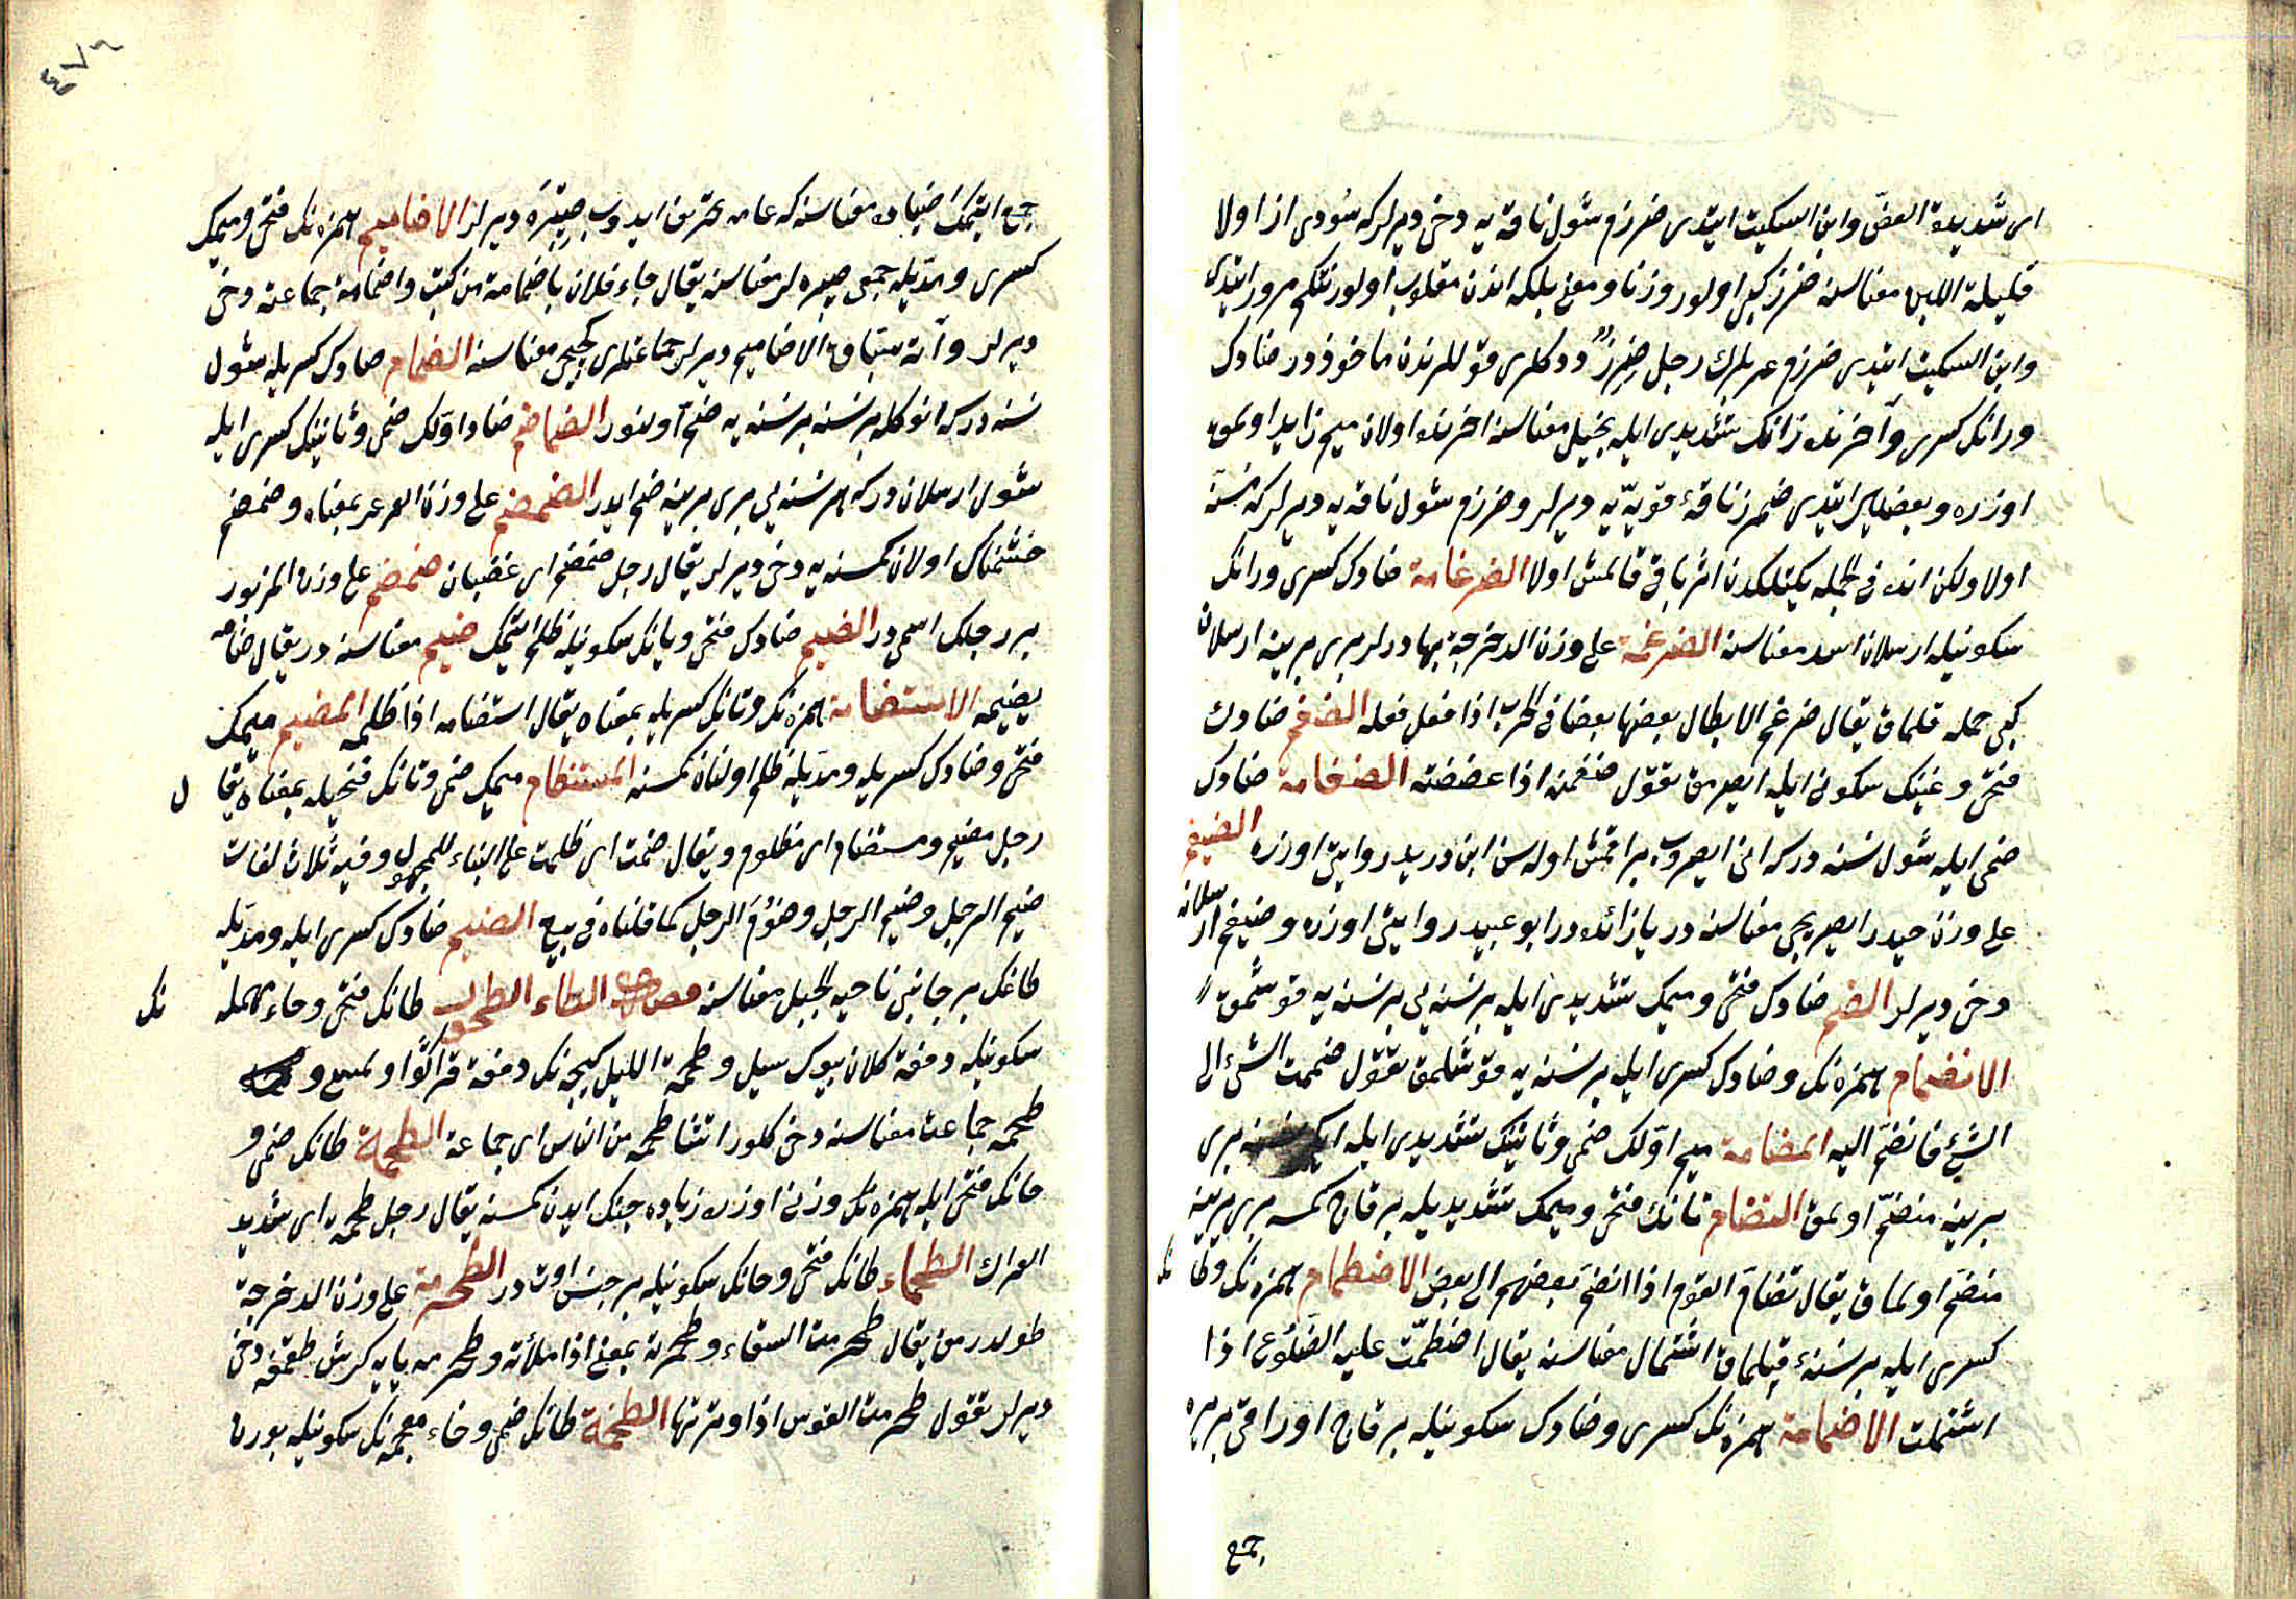 ای شدیدة العضّ وابن السکیت ایتدی ضرزم شول ناقه یه دخی دیرلر که سودی از اولا
قلیلة اللبن معناسنه ضرز کبی اولور وزنا ومعنی بلکه اندن مقلوب اولور نتکم مرور ایتدی
وابن السکیت ایتدی ضرزم عربلرك رجل ضِرِزٌّ ددکلری قوللرندن ماخوذدر ضادك
ورانك کسری وآخرنده زانك تشدیدی ایله بخیل معناسنه اخرنده اولان میم زاید اولمق
اوزره وبعضیلر ایتدی ضمرز ناقهٔ قویّه یه دیرلر وضرزم شول ناقه یه دیرلر که مسنّه
اولا ولکن انده فی الجمله یکتلکدن اثر باقی قالمش اولا الضرغامة ضادك کسری ورانك
سکونیله ارسلان اسد معناسنه الضرغمة علی وزن الدحرجة بهادرلر بری برینه ارسلان
کبی حمله قلماق یقال ضرغم الابطال بعضها بعضا فی الحرب اذا فعل فعله الضغم ضادك
فتحی وغینك سکونی ایله ایصرمق تقول ضغمته اذا عضضته الضغامة ضادك
ضمی ایله شول نسنه درکه انی ایصروب براقمش اوله سن ابن درید روایتی اوزره الضیغم
علی وزن حیدر ایصریجی معناسنه در یا زائده در ابو عبید روایتی اوزره وضیغم ارسلانه
دخی دیرلر الضم ضادك فتحی ومیمك تشدیدی ایله بر نسنه یی بر نسنه یه قوشمق
الانضمام همزه نك وضادك کسری ایله بر نسنه یه قوشلمق تقول ضممت الشیٔ الی
الشیٔ فانضمّ الیه المضامة میم اوّلك ضمی وثانینك تشدیدی ایله ایکی نسنه بری
برینه منضمّ اولمق التضام تانك فتحی ومیمك تشدیدیله بر قاچ کمسه بری برینه
منضمّ اولماق یقال تضامّ القوم اذا انضمّ بعضهم الی بعض الاضطمام همزه نك وطانك
کسری ایله بر نسنهٔ قپلماق اشتمال معناسنه یقال اضطمّت علیه الضلوع اذا
اشتملت الاضمامة همزه نك کسری وضادك سکونیله بر قاچ اوراقی بر یره
جمع
٤٧٦
جمع ایتمك ضیاده معناسنه که عامه تحریف ایدوب صپبره دیرلر الاضامیم همزه نك فتحی ومیمك
کسری ومدّیله جمعی صپبره لر معناسنه یقال جاء فلان باضمامة من کتب واضمامة جماعته دخی
دیرلر وآنه سبّاق الاضامیم دیرلر جماعتلری کچیجی معناسنه الضمام ضادك کسریله شول
نسنه درکه انوکله بر نسنه بر نسنه یه ضمّ اولنور الضماضم ضاد اوّلك ضمی وثانینك کسری ایله
شول ارسلان درکه هر نسنه یی بری برینه ضم ایدر الضمضم علی وزن العرعر بمعناه وضمضم
خشمناك اولان کمسنه یه دخی دیرلر یقال رجل ضمضم ای غضبان ضمضم علی وزن المزبور
بر رجلك اسمی در الضیم ضادك فتحی ویانك سکونیله ظلم ایتمك ضیم معناسنه در یقال ضامه
یضیمه الاستضامة همزه نك وتانك کسریله بمعناه یقال استضامه اذا ظلمه المضیم میمك
فتحی وضادك کسریله ومدّیله ظلم اولنان کمسنه المستظام میمك ضمی وتانك فتحیله بمعناه یقال
رجل مضیم ومستضام ای مظلوم ویقال ضمت ای ظلمت علی البناء للمجهول وفیه ثلاث لغات
ضیم الرجل وضیم الرجل وضوُم الرجل کما قلناه فی بیع الضیم ضادك کسری ایله ومدّیله
طاغك بر جانبی ناحیه الجبل معناسنه الطاء الطحم طانك فتحی وحاء مهمله نك
سکونیله دفعة کلان بیوك سیل وطحمة اللیل کیجه نك دفعة قراکوًا ولمسی و
طحمه جماعت معناسنه دخی کلور اتتنا طحمه من الناس ای جماعة الطحمة طانك ضمی و
حانك فتحی ایله همزه نك وزنی اوزره زیاده جنك ایدن کمسنه یقال رجل طحمه ای شدید
العراك الطحماء طانك فتحی وحانك سکونیله بر جنس اوت در الطحرمة علی وزن الدحرجة
طولدرمق یقال طحرمت السقاء وطحرمته بمعنی اذا ملأته وطحرمه یایه کرش طقمغه دخی
دیرلر تقول طحرمت القوس اذا وترتها الطخمة طانك ضمی وخاء معجمه نك سکونیله بورن